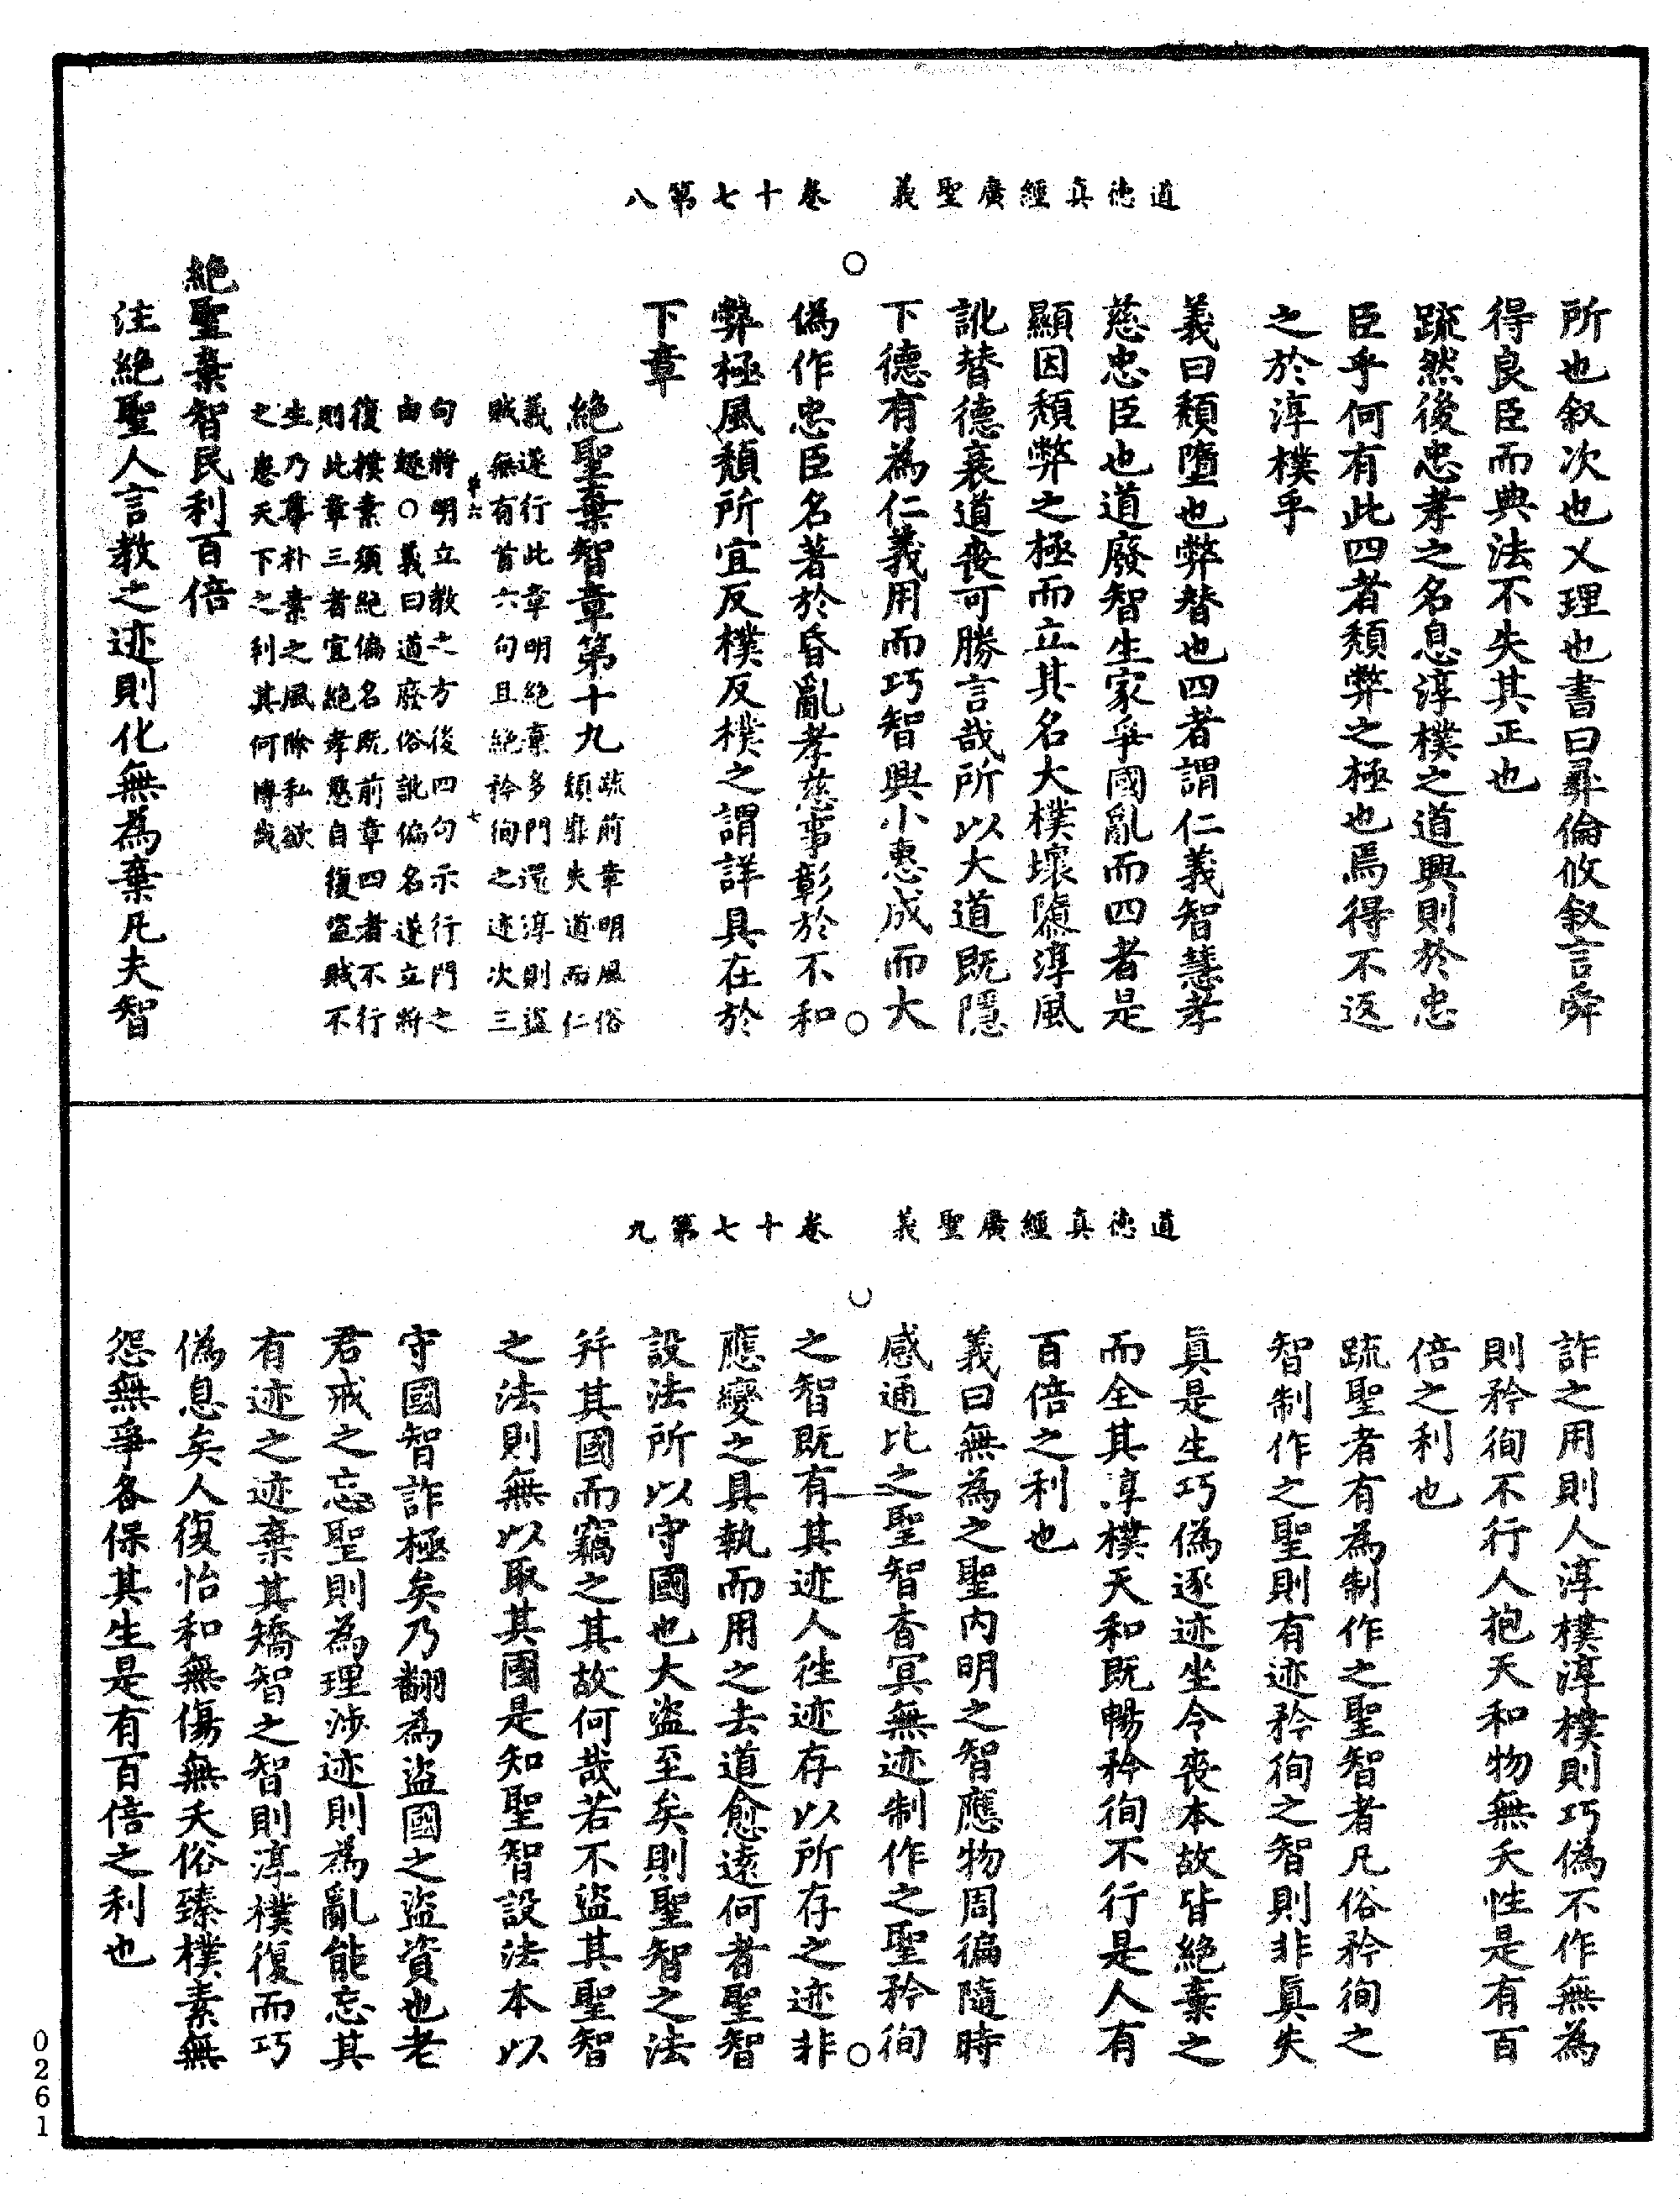 道德真經廣聖義　卷十七第八
所也叙次也乂理也書曰彛倫攸叙言舜
得良臣而典法不失其正也
疏然後忠孝之名息淳樸之道興則於忠
臣乎何有此四者頹弊之極也焉得不返
之於淳樸乎
義曰頹墮也弊替也四者謂仁義智慧孝
慈忠臣也道廢智生家爭國亂而四者是
顯因頹弊之極而立其名大樸壞隳淳風
訛替德衰道喪可勝言哉所以大道既隱
下德有為仁義用而巧智興小惠成而大
偽作忠臣名著於昏亂孝慈事彰於不和
弊極風頹所宜反樸反樸之謂詳具在於
下章
絕聖棄智章第十九
疏前章明風俗
頹弊失道而仁
義遂行此章明絕棄多門還淳則盜
賊無有首六句且絕矜徇之迹次三
句將明立教之方後四句示行門之
由趣○義曰道廢俗訛偏名遂立將
復樸素須絕偏名既前章四者不行
則此章三者宜絕孝慈自復盜賊不
生乃尊朴素之風除私欲
之患天下之利其何博哉
絕聖棄智民利百倍
注絕聖人言教之迹則化無為棄凡夫智
道德真經廣聖義　卷十七第九
詐之用則人淳樸淳樸則巧偽不作無為
則矜徇不行人抱天和物無夭性是有百
倍之利也
疏聖者有為制作之聖智者凡俗矜徇之
智制作之聖則有迹矜徇之智則非真失
真是生巧偽逐迹坐令喪本故皆絕棄之
而全其淳樸天和既暢矜徇不行是人有
百倍之利也
義曰無為之聖內明之智應物周徧隨時
感通比之聖智杳冥無迹制作之聖矜徇
之智既有其迹人往迹存以所存之迹非
應變之具執而用之去道愈遠何者聖智
設法所以守國也大盜至矣則聖智之法
并其國而竊之其故何哉若不盜其聖智
之法則無以取其國是知聖智設法本以
守國智詐極矣乃翻為盜國之盜資也老
君戒之忘聖則為理涉迹則為亂能忘其
有迹之迹棄其矯智之智則淳樸復而巧
偽息矣人復怡和無傷無夭俗臻樸素無
怨無爭各保其生是有百倍之利也
0261